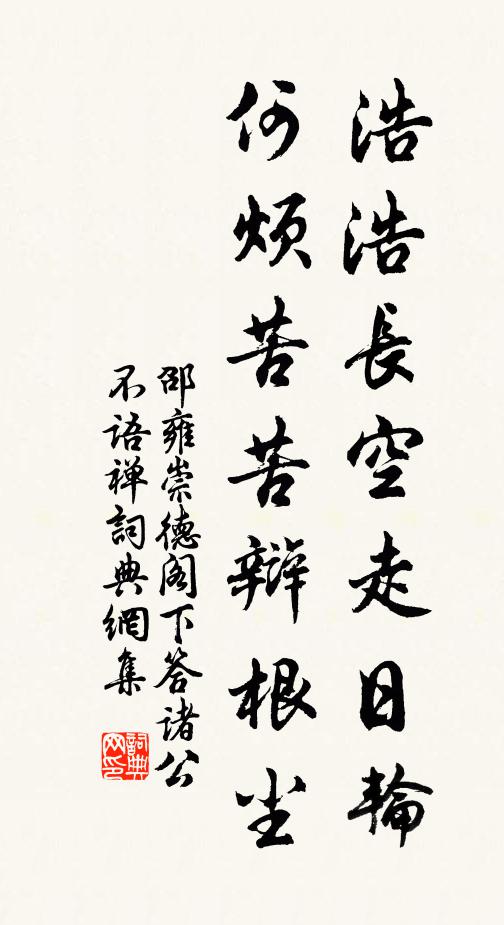 浩浩長空走日輪
何煩苦苦辯根尘
邵雍崇德阁下答诸公
不语禅詞典網集
詞典网印